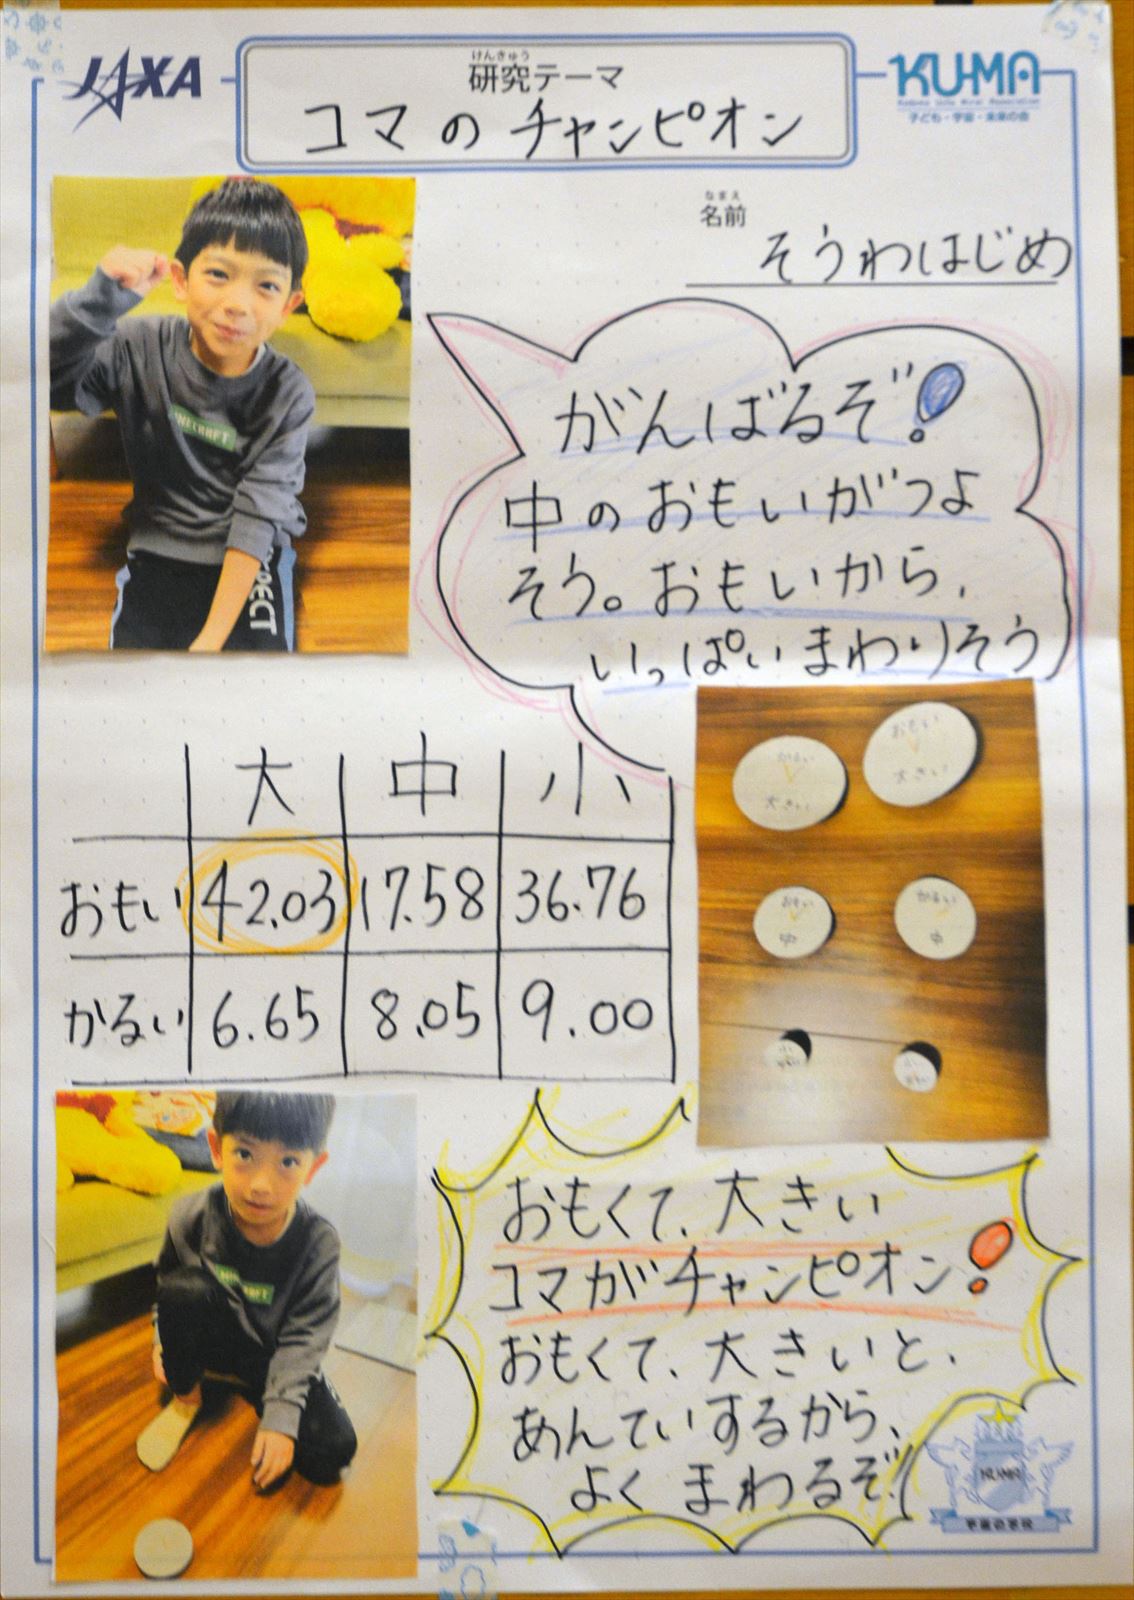 JAXA
けんきゅう
研究テーマ
コマのチャンピオン
KU-MA
子ども・宇宙・未来の会
なまえ
名前
そうわはじめ
がんばるぞ!
中のおもいがつよ
そう。おもいから、
いっぱいまわりそう
大 中 小
おもい 42.03 17.58 36.76
かるい 6.65 8.05 9.00
かるい
大きい
おもい
大きい
おもい
中
かるい
中
おもくて、大きい
コマがチャンピオン!
おもくて、大きいと、
あんていするから、
よくまわるぞ!
KU-MA
宇宙の学校